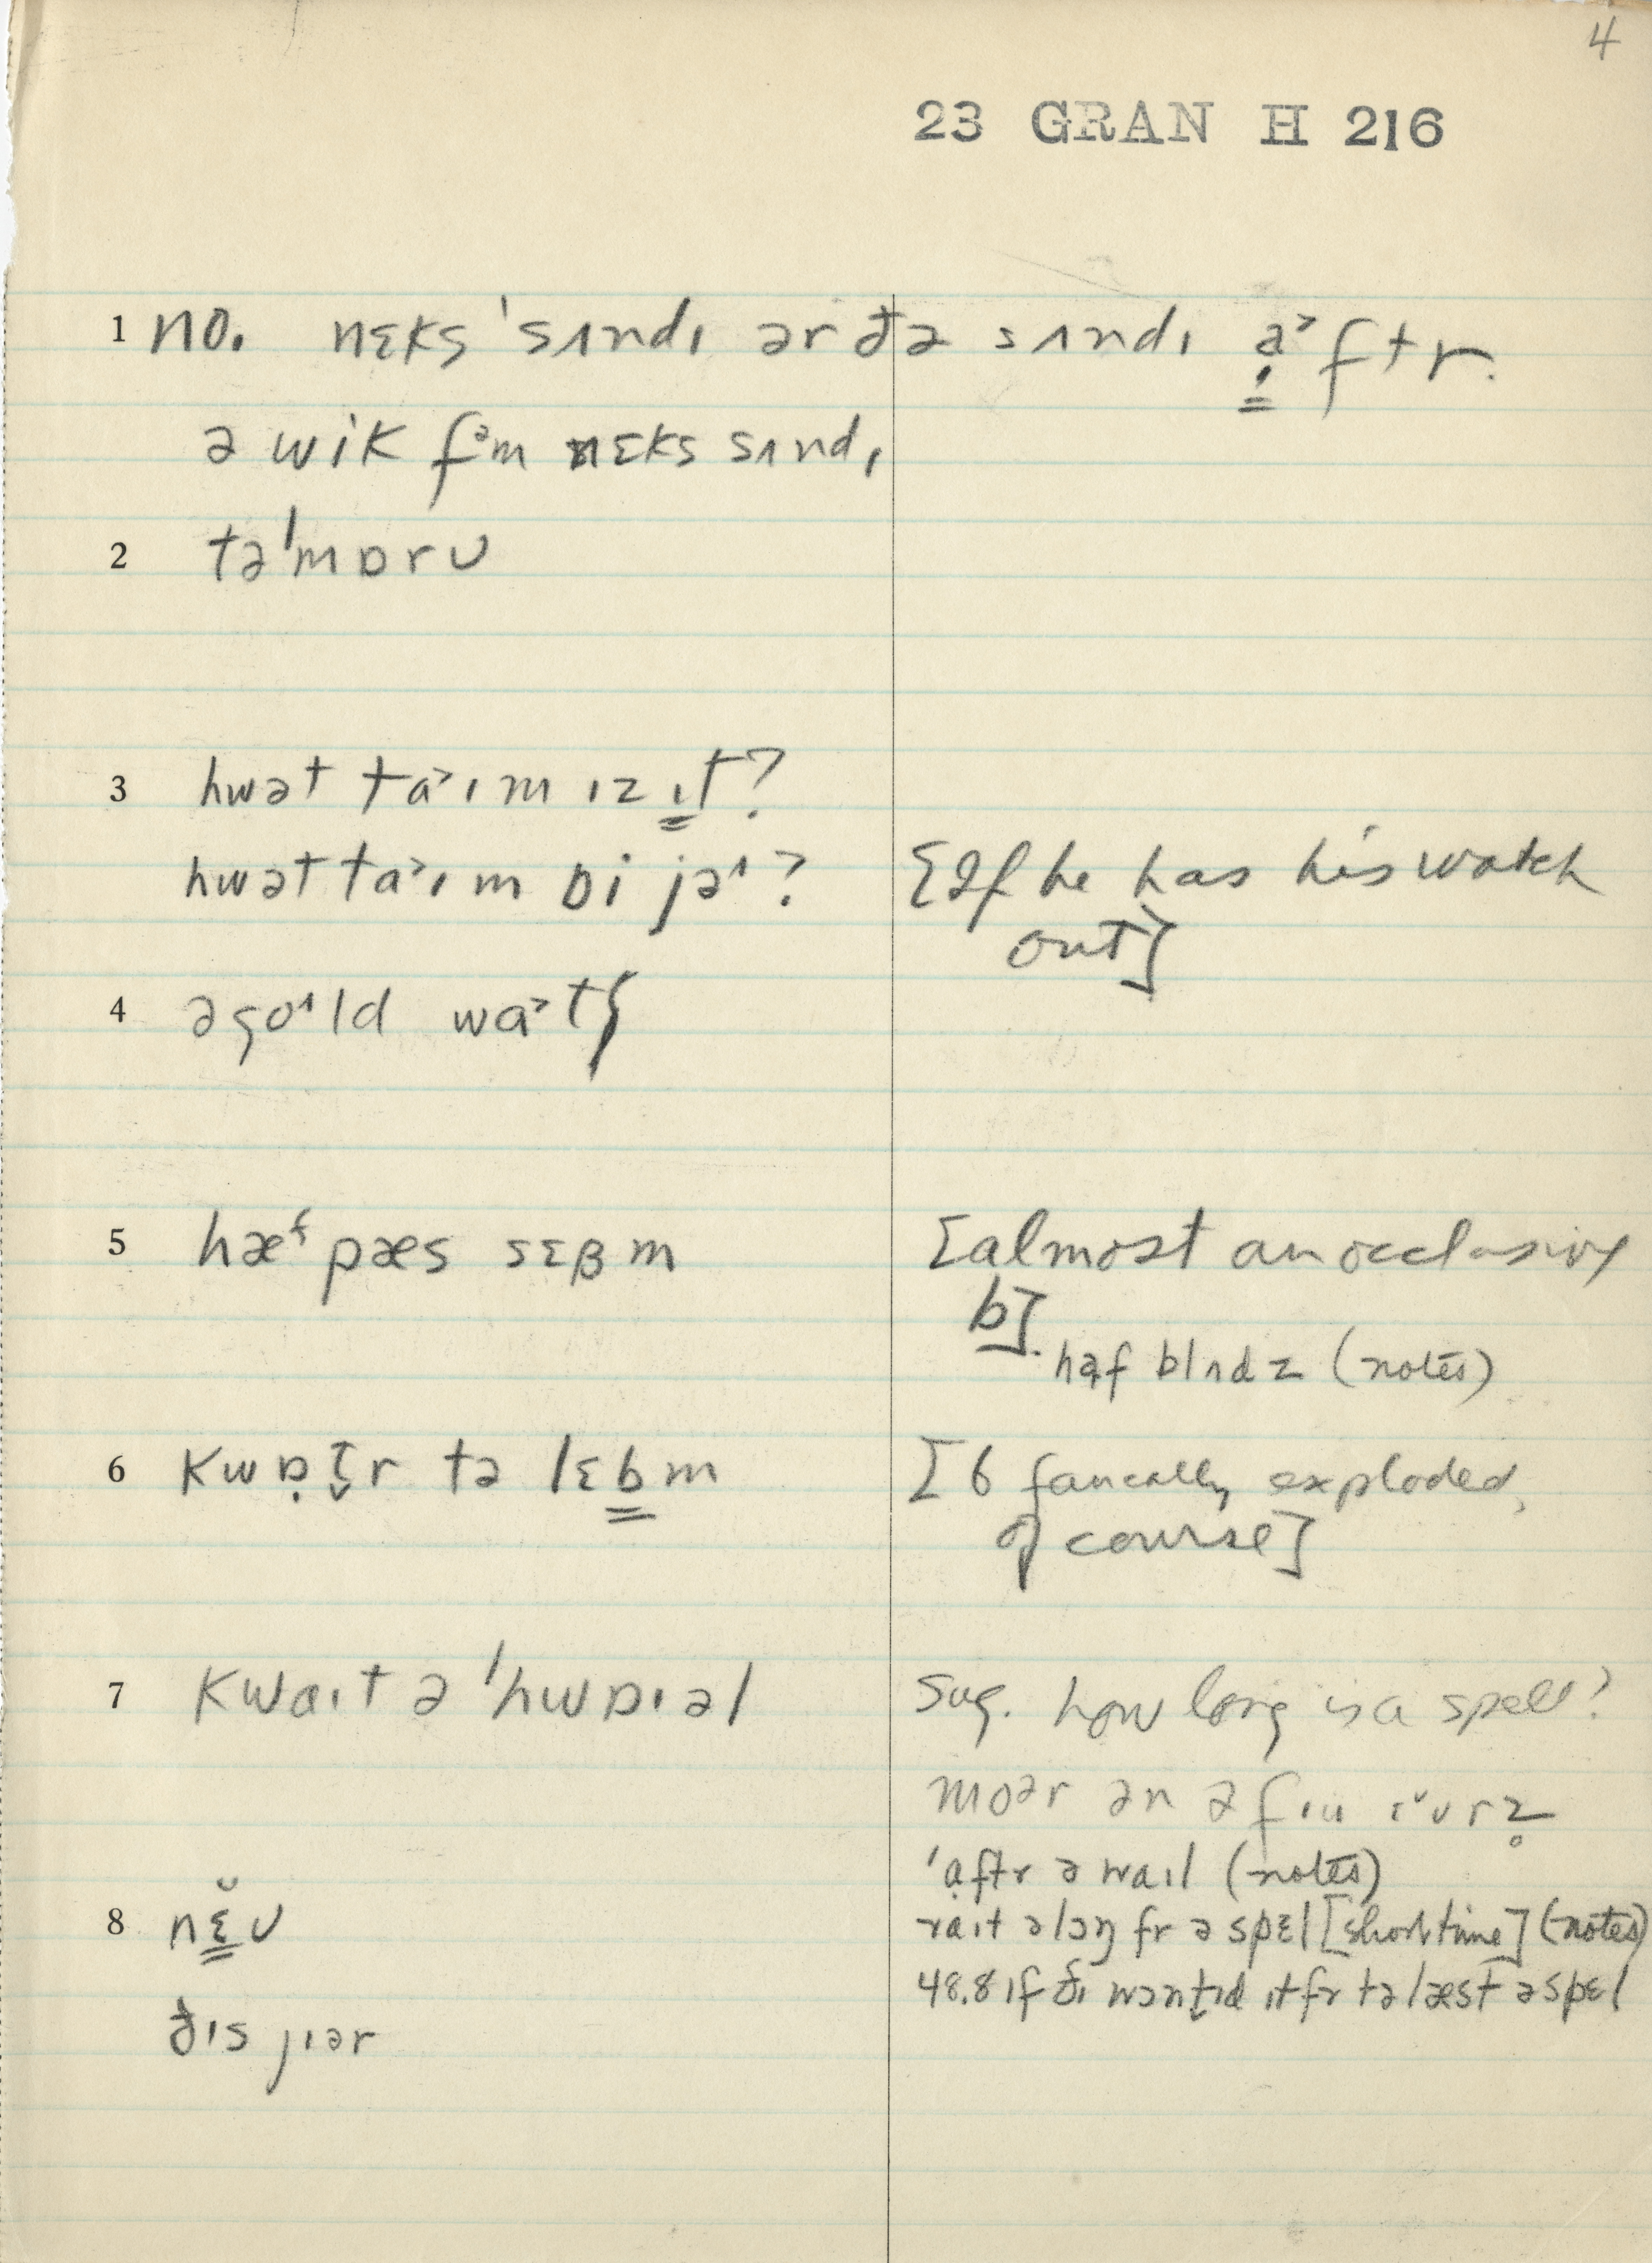 4
23 GRAN H 216
1 no. nɛks ˈsʌndɪ ər ðə sʌndɪ a˃ftr.
ə wik fᵊm nɛks sʌndɪ
2 təˈmɒrʊ
3 hwət ta˃ɪm ɪz ɪt?
hwət ta˃ɪm
[If he has his watch
out]
4 ə go˄ld wa˃tʃ
5 hæᶠ pæs sɛβm
[almost an occlusive
b].
haf blndz (notes)
6 kwɒ̣t̬r tə lɛbm
[b faucally exploded,
of course]
7 kwaɪt ə ˈhwɒɪəl
Sug. how long is a spell?
moər ən ə fɪu
ˈaftr ə waɪl (notes)
raɪt əlɔŋ fr ə spɛl [short time] (notes)
48.8 ɪf ðɪ wɔntɪd ɪt fr tə læst ə spɛl
8 nɛ̆ʊ
ðɪs jɪər